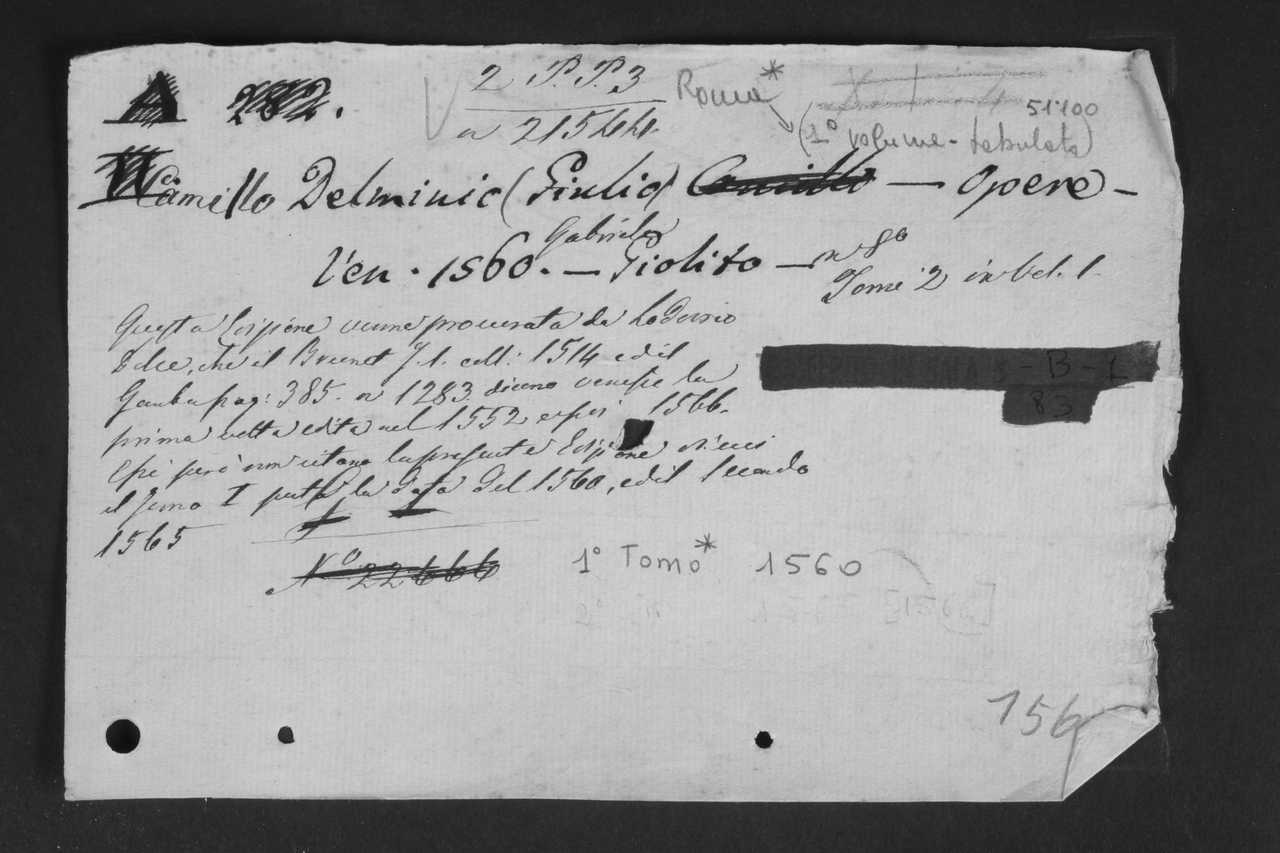 2 P.P. 3
n 21564
Roma*
51100
(1° volume - tabulato)
Camillo Delminio (Giulio) Camillo — Opere —
Gabriele
Ven. 1560. — Giolito — in 8°
Tomi 2 in Vol. 1.
Questa Edizione venne procurata da Lodovico
Dolce, che il Brunet T. 1. coll: 1514 ed il
Gamba pag: 385. n 1283. dicono venisse la
prima volta edita nel 1552 e poi 1566.
Essi però non citano la presente Edizione di cui
il Tomo I porta la data del 1560, ed il secondo
1565
- B - 1
83
N° 22666
1° Tomo* 1560
2°
156